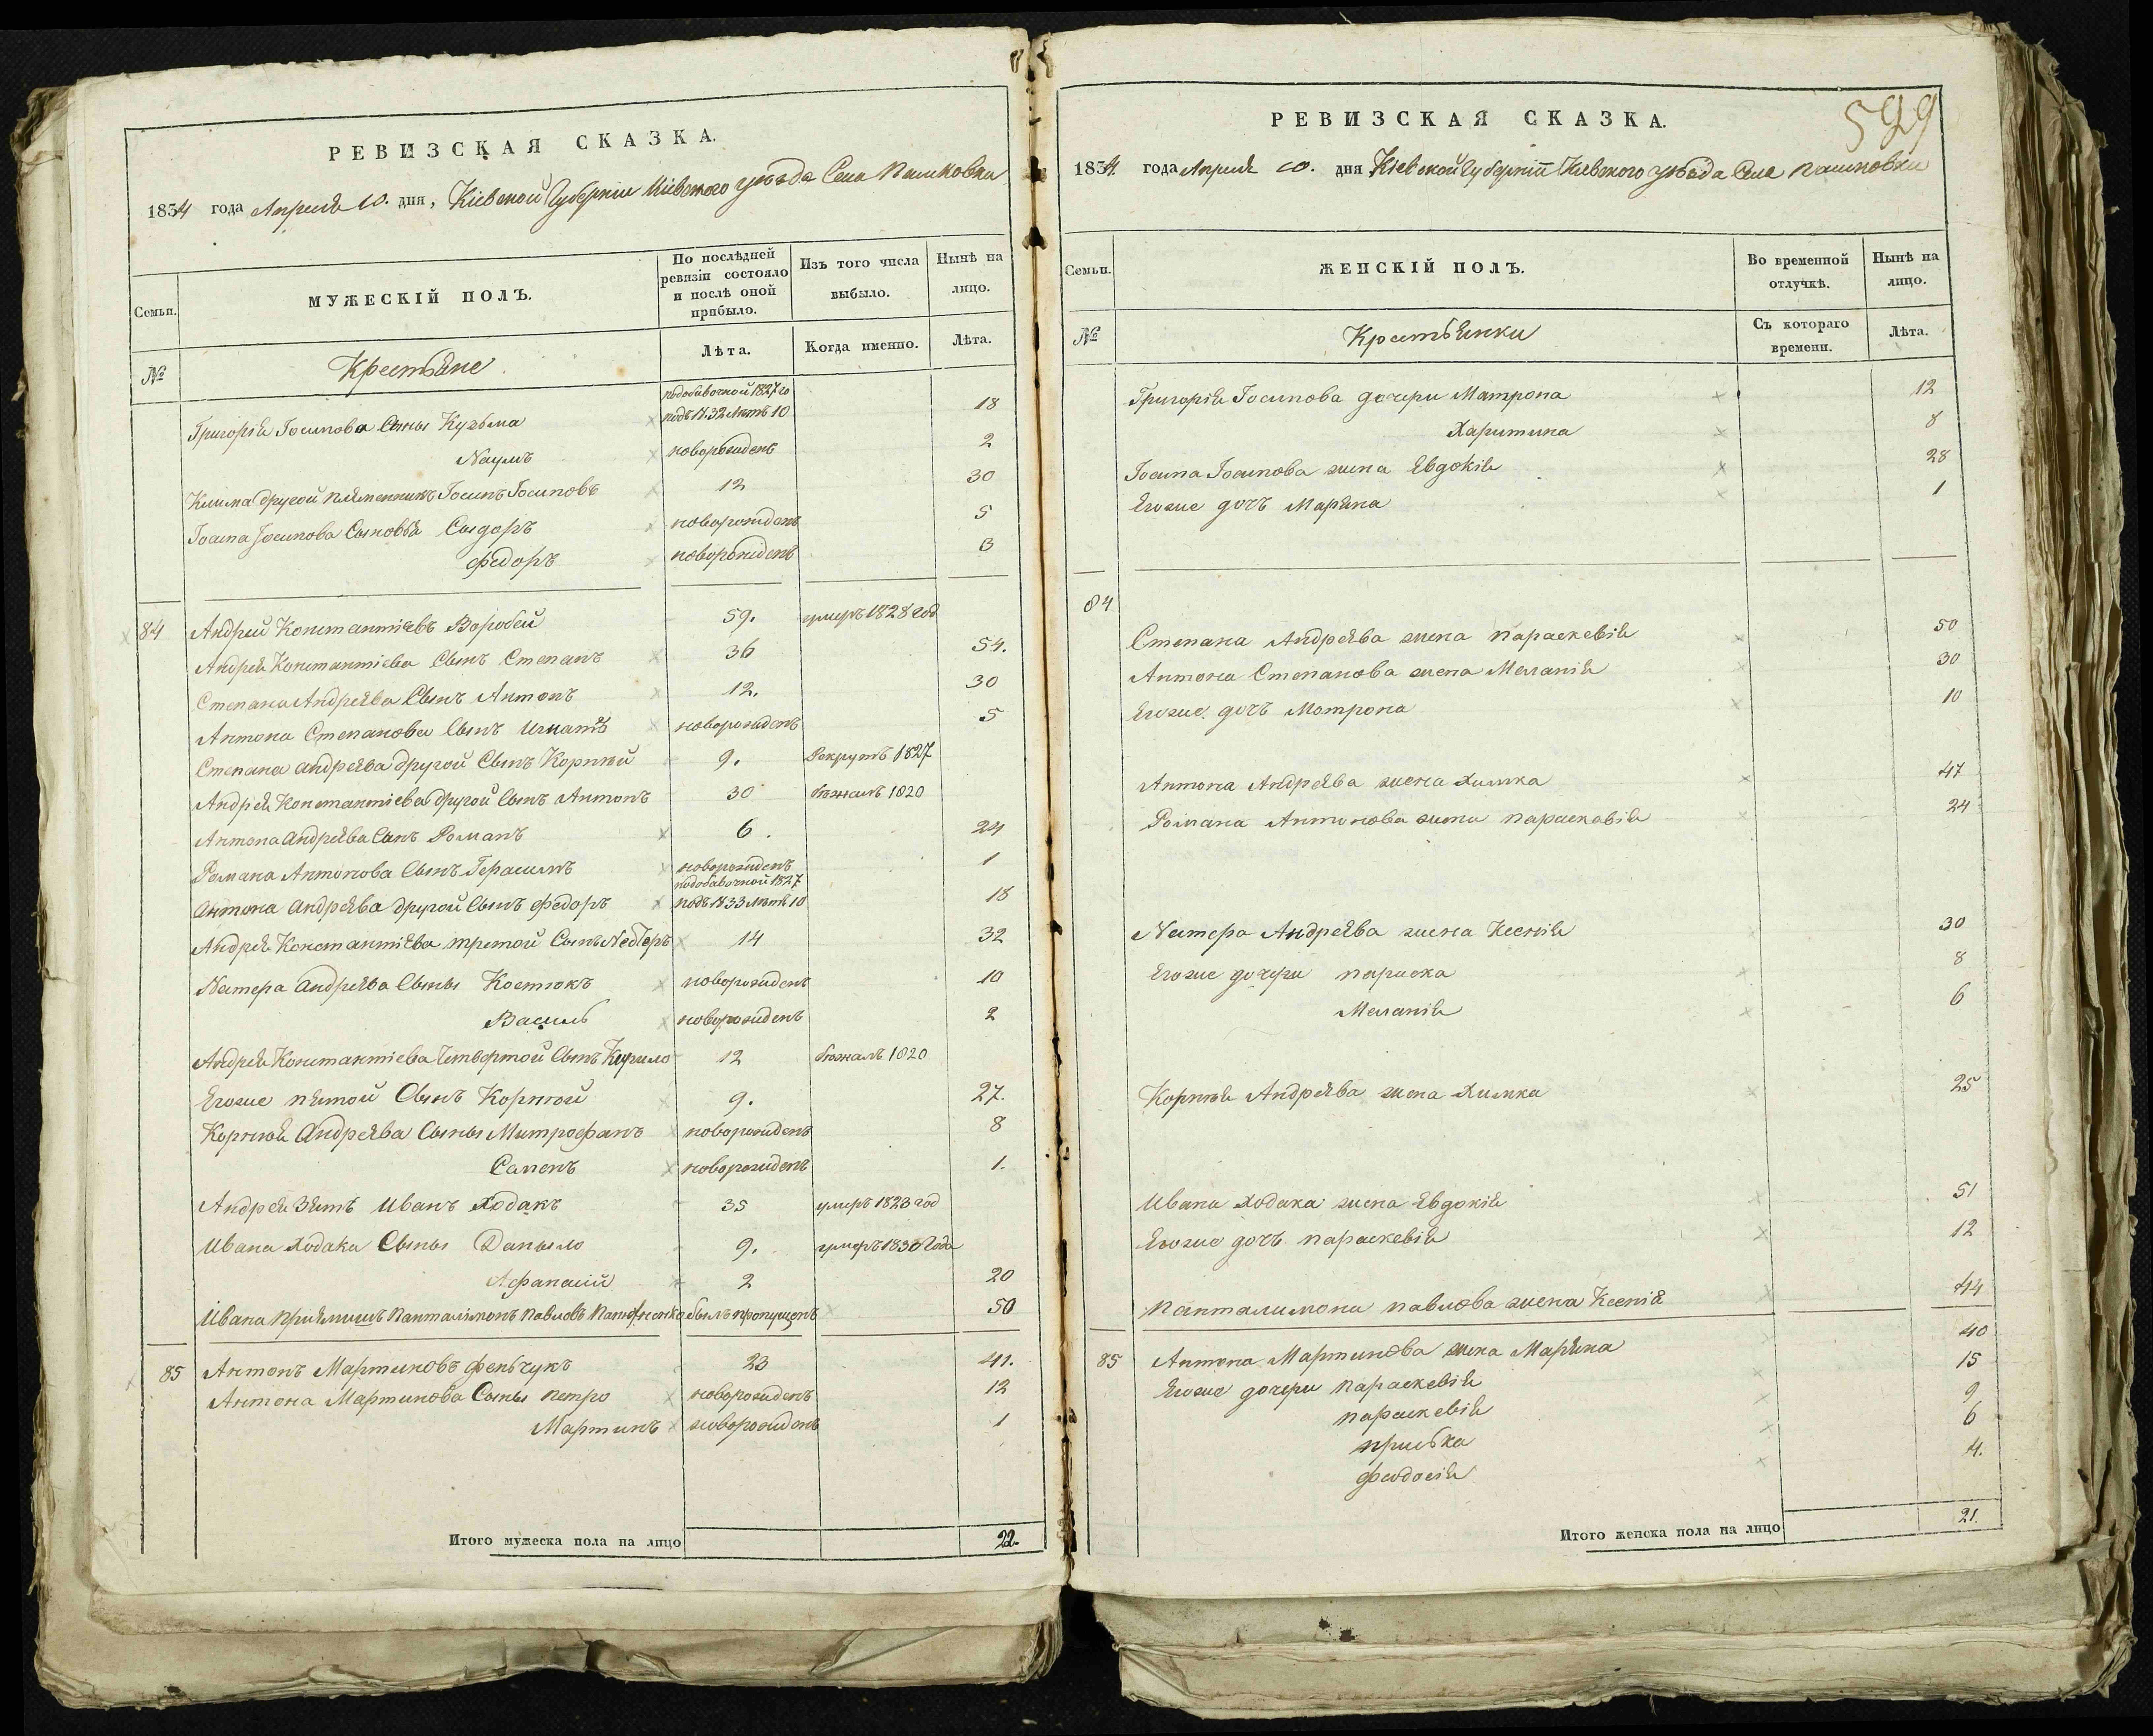 РЕВИЗСКАЯ СКАЗКА.
1834 года Апреля 10. дня, Кіевской Губерніи Кіевского уезда Села Пашковки
Семьи.
МУЖЕСКІЙ ПОЛЪ.
По послѣдней ревизіи состояло и послѣ оной прибыло.
Изъ того числа выбыло.
Нынѣ на лицо.
№
Крестьяне
Лѣта.
Когда именно.
Лѣта.
Григорія Іосипова Сыны Кузьма подобавочной 1827го подъ № 32 Летъ 10 18
Наумъ новорожденъ 2
Клима другой племенникъ Іосипъ Іосиповъ 12 30
Іосипа Іосипова Сыновья Сыдоръ новорожденъ 5
Федоръ новорожденъ 3
84 Андрей Константіевъ Воробей 59. умеръ 1828 год
Андрея Константіева Сынъ Степанъ 36 54.
Степана Андреява Сынъ Антонъ 12. 30
Антона Степанова Сынъ Игнатъ новорожденъ 5
Степана Андреява другой Сынъ Корнѣй 9. Рекрутъ 1827
Андрея Константіева другой Сынъ Антонъ 30 бежалъ 1820
Антона Андреява Сынъ Романъ 6. 24
Романа Антонова Сынъ Герасимъ новорожденъ 1
Антона Андреява другой Сынъ Федоръ подобавочной 1827 подъ № 33 Летъ 10 18
Андрея Константіява третой Сынъ 14 32
Нестера Андреява Сыны Костюкъ новорожденъ 10
Василь новорожденъ 2
Андрея Константіева Четвертой Сынъ Кирило 12 бежалъ 1820
Егоже пятой Сынъ Корнѣй 9. 27.
Корнѣя Андреява Сыны Митрофанъ новорожденъ 8
новорожденъ 1.
Андрея Зять Иванъ Ходакъ 35 умеръ 1823 год
Ивана Ходака Сыны Даныло 9. умеръ 1830 Года
Афанасій 2 20
Ивана Пріямышъ Панталимонъ Павловъ былъ пропущенъ 50
85 Антонъ Мартиновъ Феньчукъ 23 41.
Антона Мартинова Сыны Петро новорожденъ 12
Мартинъ новорожденъ 1
Итого мужеска пола на лицо 22.
599
РЕВИЗСКАЯ СКАЗКА.
1834 года Апреля 10. дня Кіевской Губерніи Кіевского уезда Села Пашковки
Семьи.
ЖЕНСКІЙ ПОЛЪ.
Во временной отлучкѣ.
Нынѣ на лицо.
№
Крестьянки
Съ котораго времени.
Лѣта.
Григорія Іосипова дочери Матрона 12
Харитина 8
Іосипа Іосипова жена Явдокія 28
Егоже дочъ Маряна 1
84
Степана Андреява жена Параскевія 50
Антона Степанова жена Меланія 30
Егоже дочъ Мотрона 10
Антона Андреява жена Химка 47
Романа Антонова жена Параскавія 24
Нестера Андреява жена Ксенія 30
Егоже дочери Параска 8
Меланія 6
Корнѣя Андреява жена Химка 25
Ивана Ходака жена Явдокія 51
Егоже дочъ Параскевія 12
Панталимона Павлова жена Ксенія 44
85 Антона Мартинова жена Маряна 40
Егоже дочери Параскевія 15
Параскевія 9
Приська 6
Феодосія 4.
Итого женска пола на лицо 21.